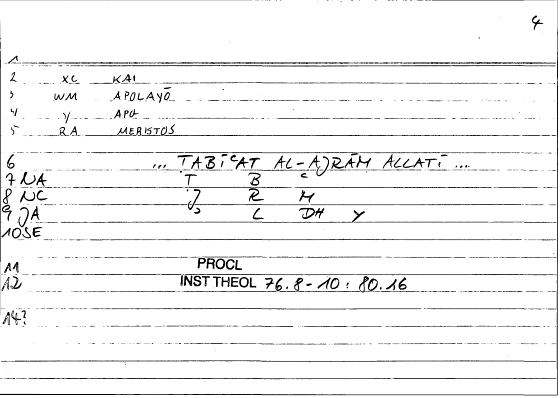 4
1
2 XC KAI
3 WM APOLAYŌ
4 Y APO
5 RA MERISTOS
6 ... ṬABĪʿAT AL-AJRĀM ALLATĪ ...
7 NA Ṭ B ʿ
8 NC J R M
9 JA L DH Y
10 SE
11 PROCL
12 INST THEOL 76.8-10 : 80.16
14?